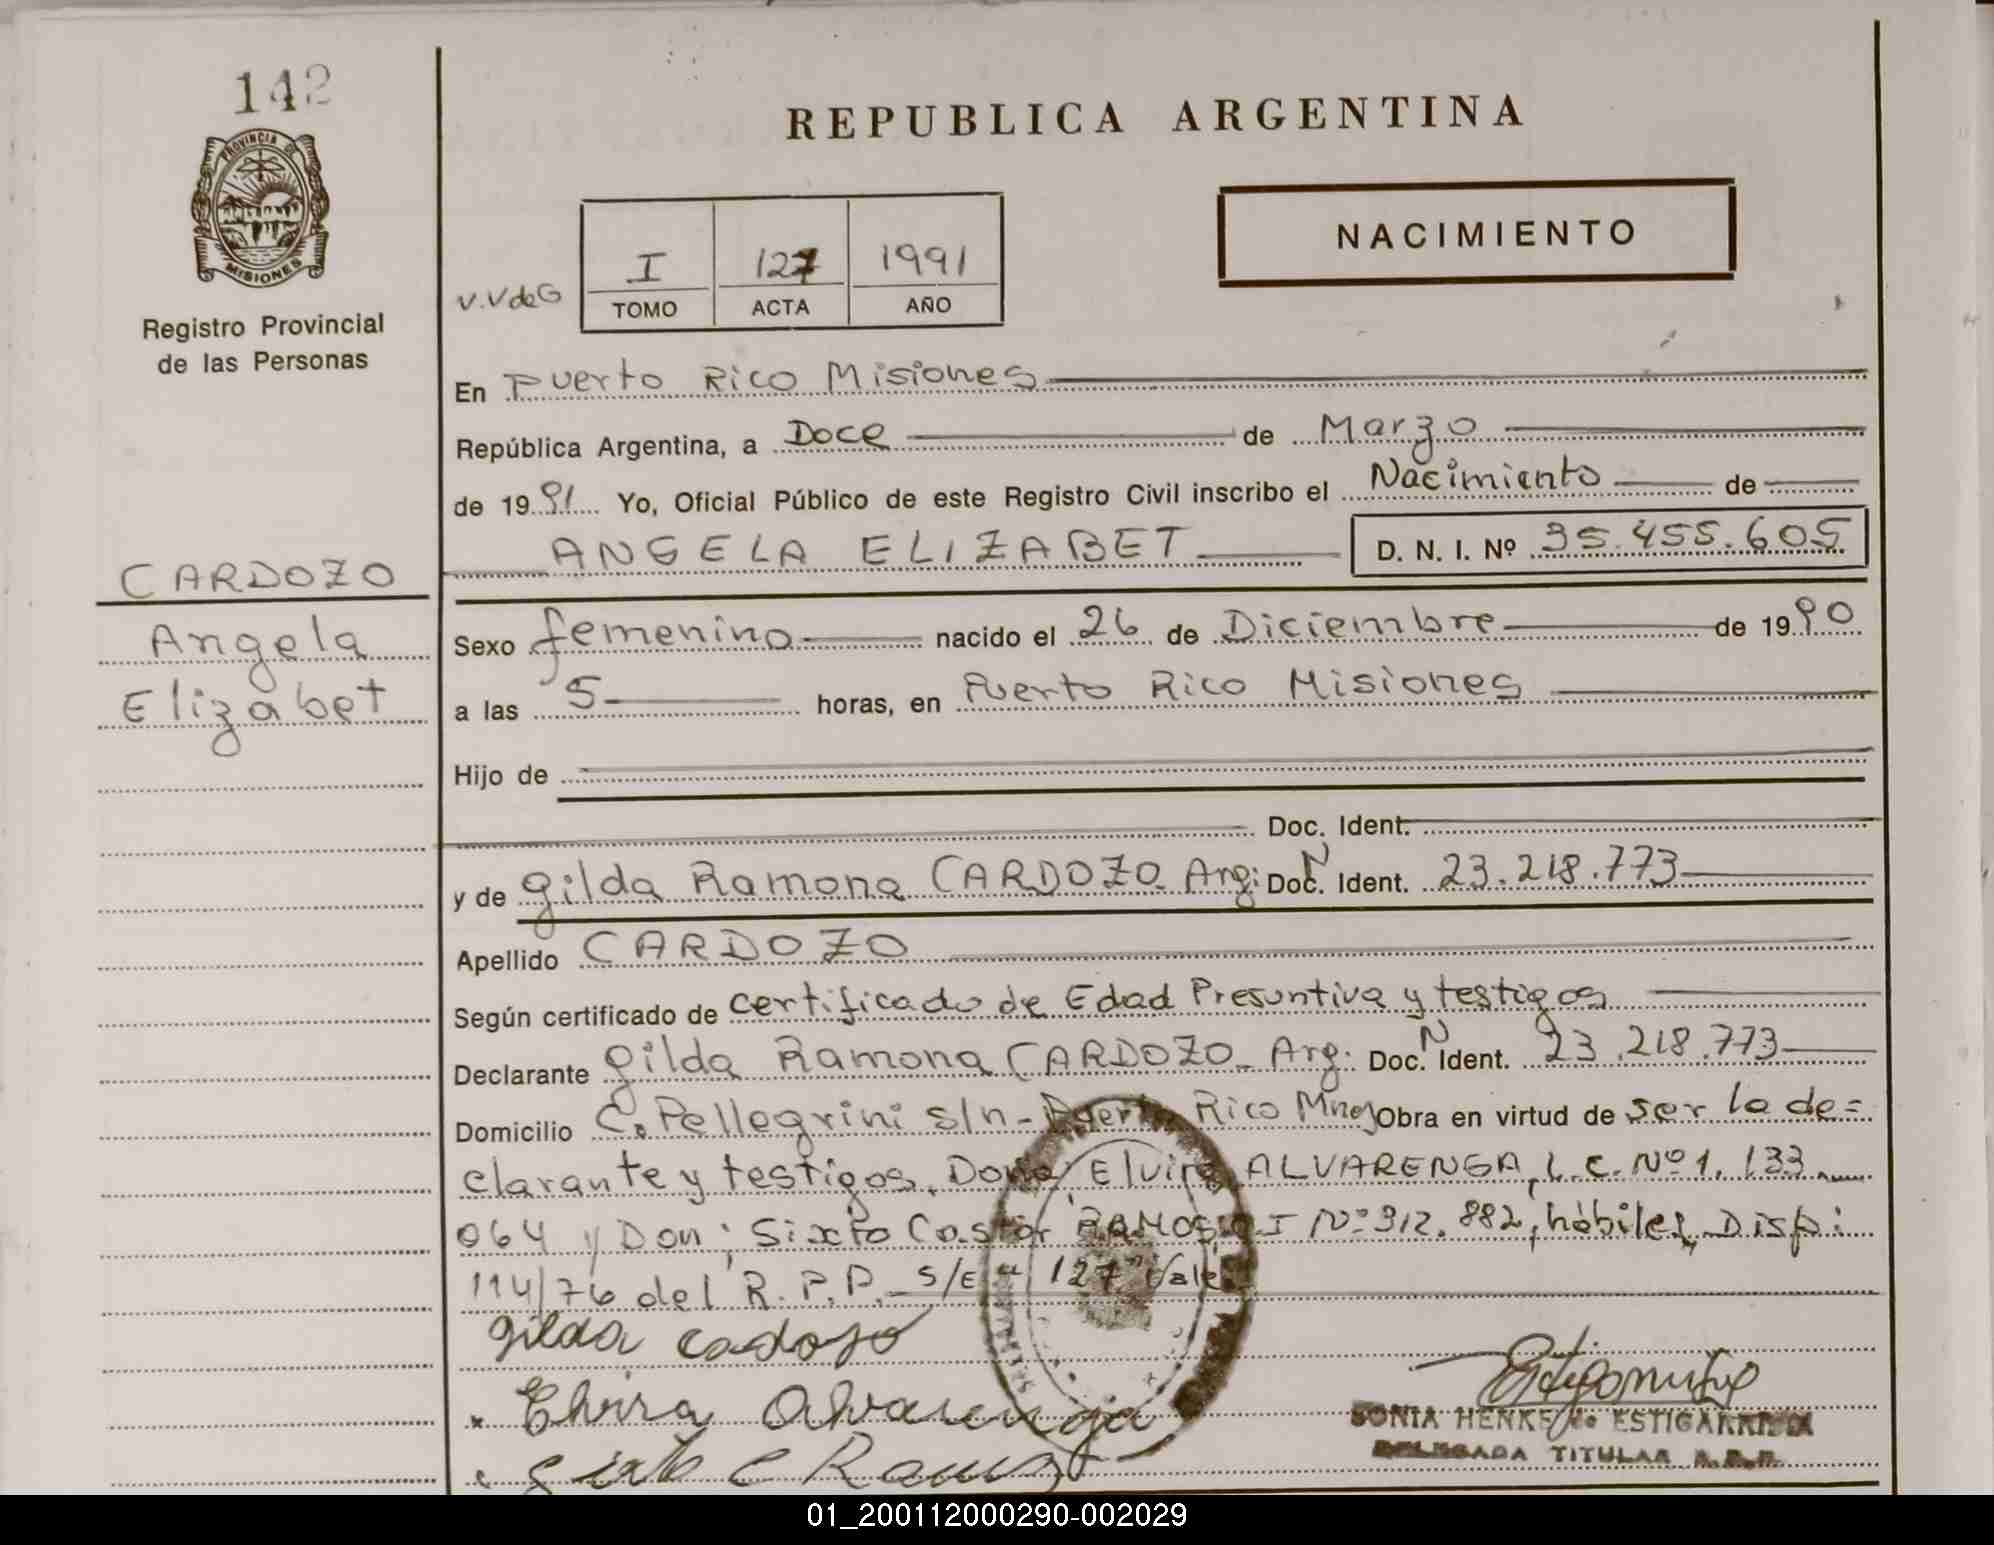 142
PROVINCIA DE
MISIONES
Registro Provincial
de las Personas
CARDOZO
Angela
Elizabet
REPUBLICA ARGENTINA
NACIMIENTO
V.VdeG
I 127 1991
TOMO ACTA AÑO
En Puerto Rico Misiones
República Argentina, a Doce de Marzo
de 1991 Yo, Oficial Público de este Registro Civil inscribo el Nacimiento de
ANGELA ELIZABET D. N. I. Nº 35.455.605
Sexo femenino nacido el 26 de Diciembre de 1990
a las 5 horas, en Puerto Rico Misiones
Hijo de
Doc. Ident.
y de Gilda Ramona CARDOZO Arg: Doc. N Ident. 23.218.773
Apellido CARDOZO
Según certificado de certificado de Edad Presuntiva y testigos
Declarante Gilda Ramona CARDOZO - Arg. Doc. N Ident. 23.218.773
Domicilio C. Pellegrini s/n - Puerto Rico Mnes Obra en virtud de ser la de=
clarante y testigos. Doña, Elvira ALVARENGA, L.C. Nº 1.133
064 y Don; Sixto Castor RAMOS I Nº 912.882, hábiles, Disp:
114/76 del R.P.P. - S/E "127" Vale
Gilda Cadoso
x Elvira Alvarenga
Sixto C Ramos
SONIA HENKE de ESTIGARRIBIA
DELEGADA TITULAR R.P.P.
01_200112000290-002029